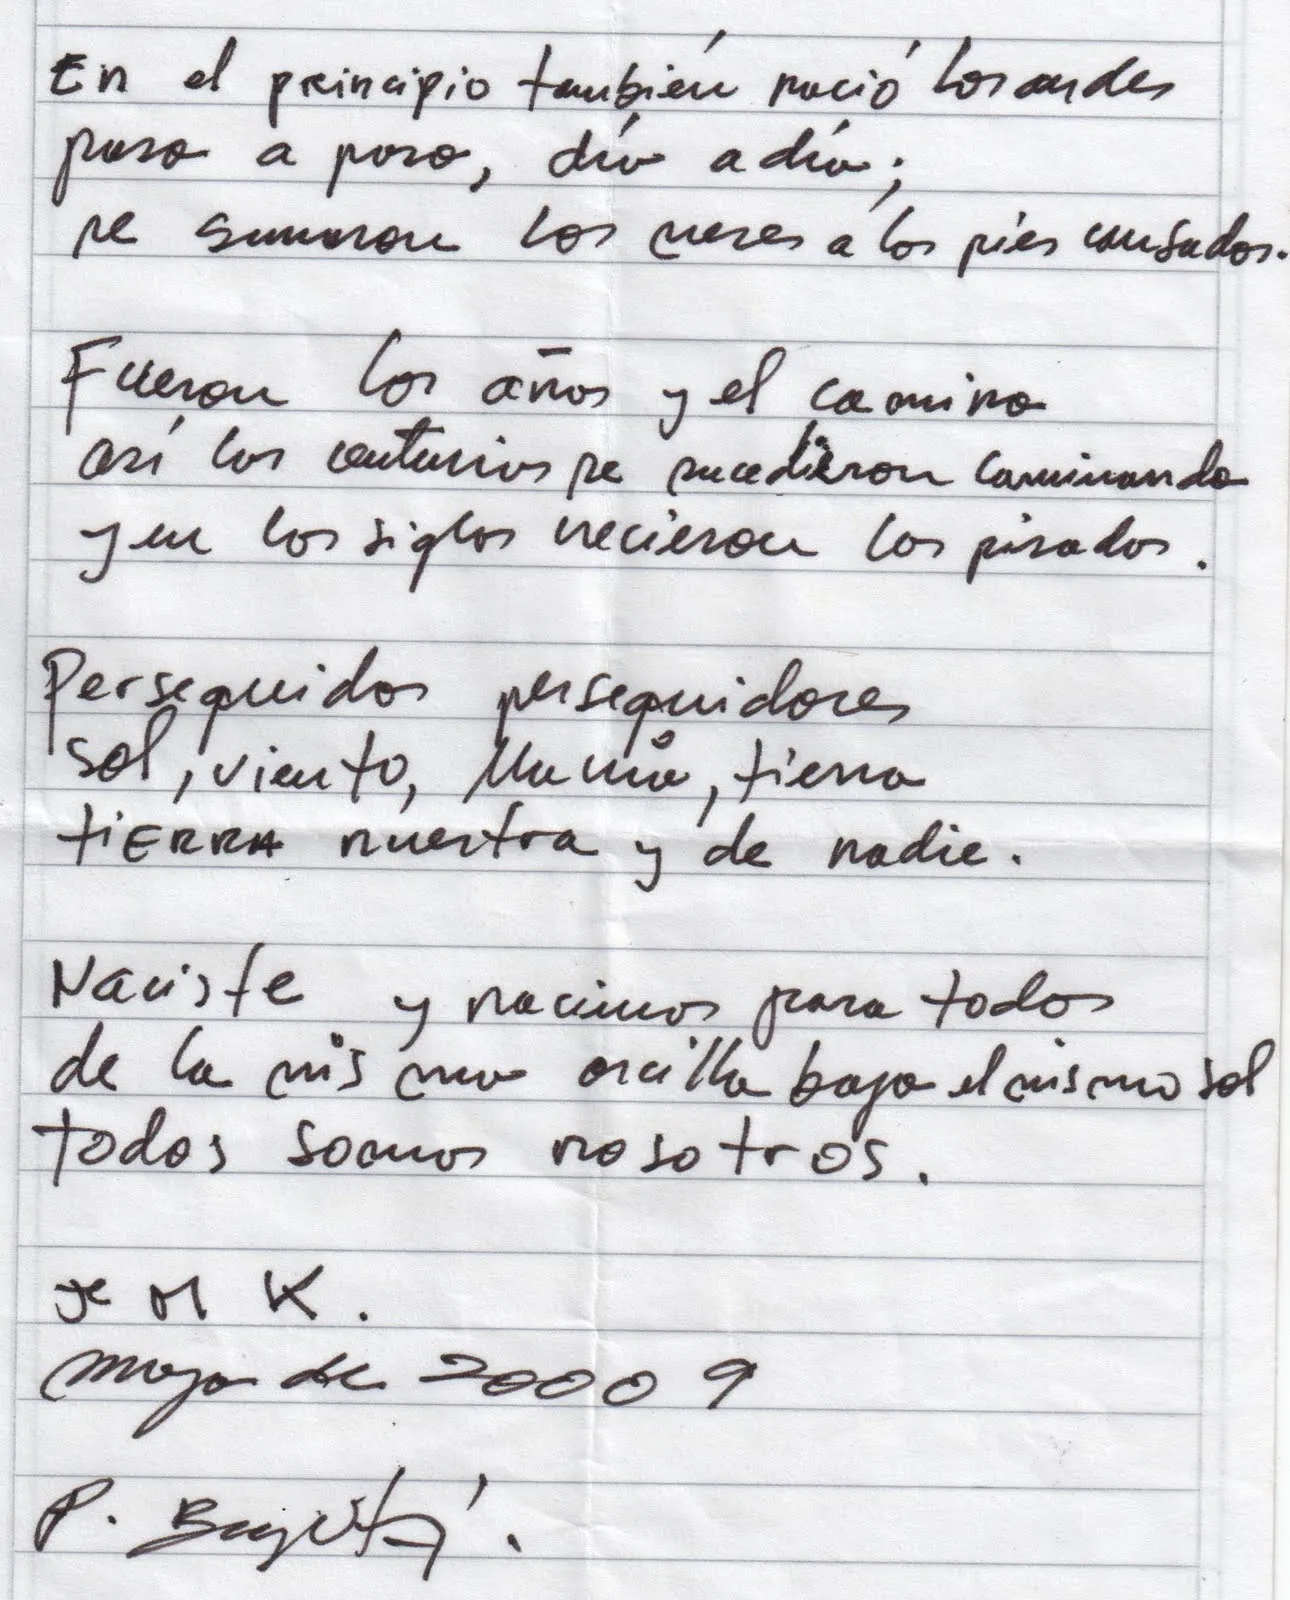 En el principio también nació los andes
paso a paso, día a día;
se sumaron los meses a los pies cansados.
Fueron los años y el camino
así las centurias se sucedieron caminando
y en los siglos crecieron las pisadas.
Perseguidos perseguidores
sol, viento, lluvia, tierra
tiERRA nuestra y de nadie.
Naciste y nacimos para todos
de la misma arcilla bajo el mismo sol
todos somos nosotros.
M K.
mayo de 20009
P.